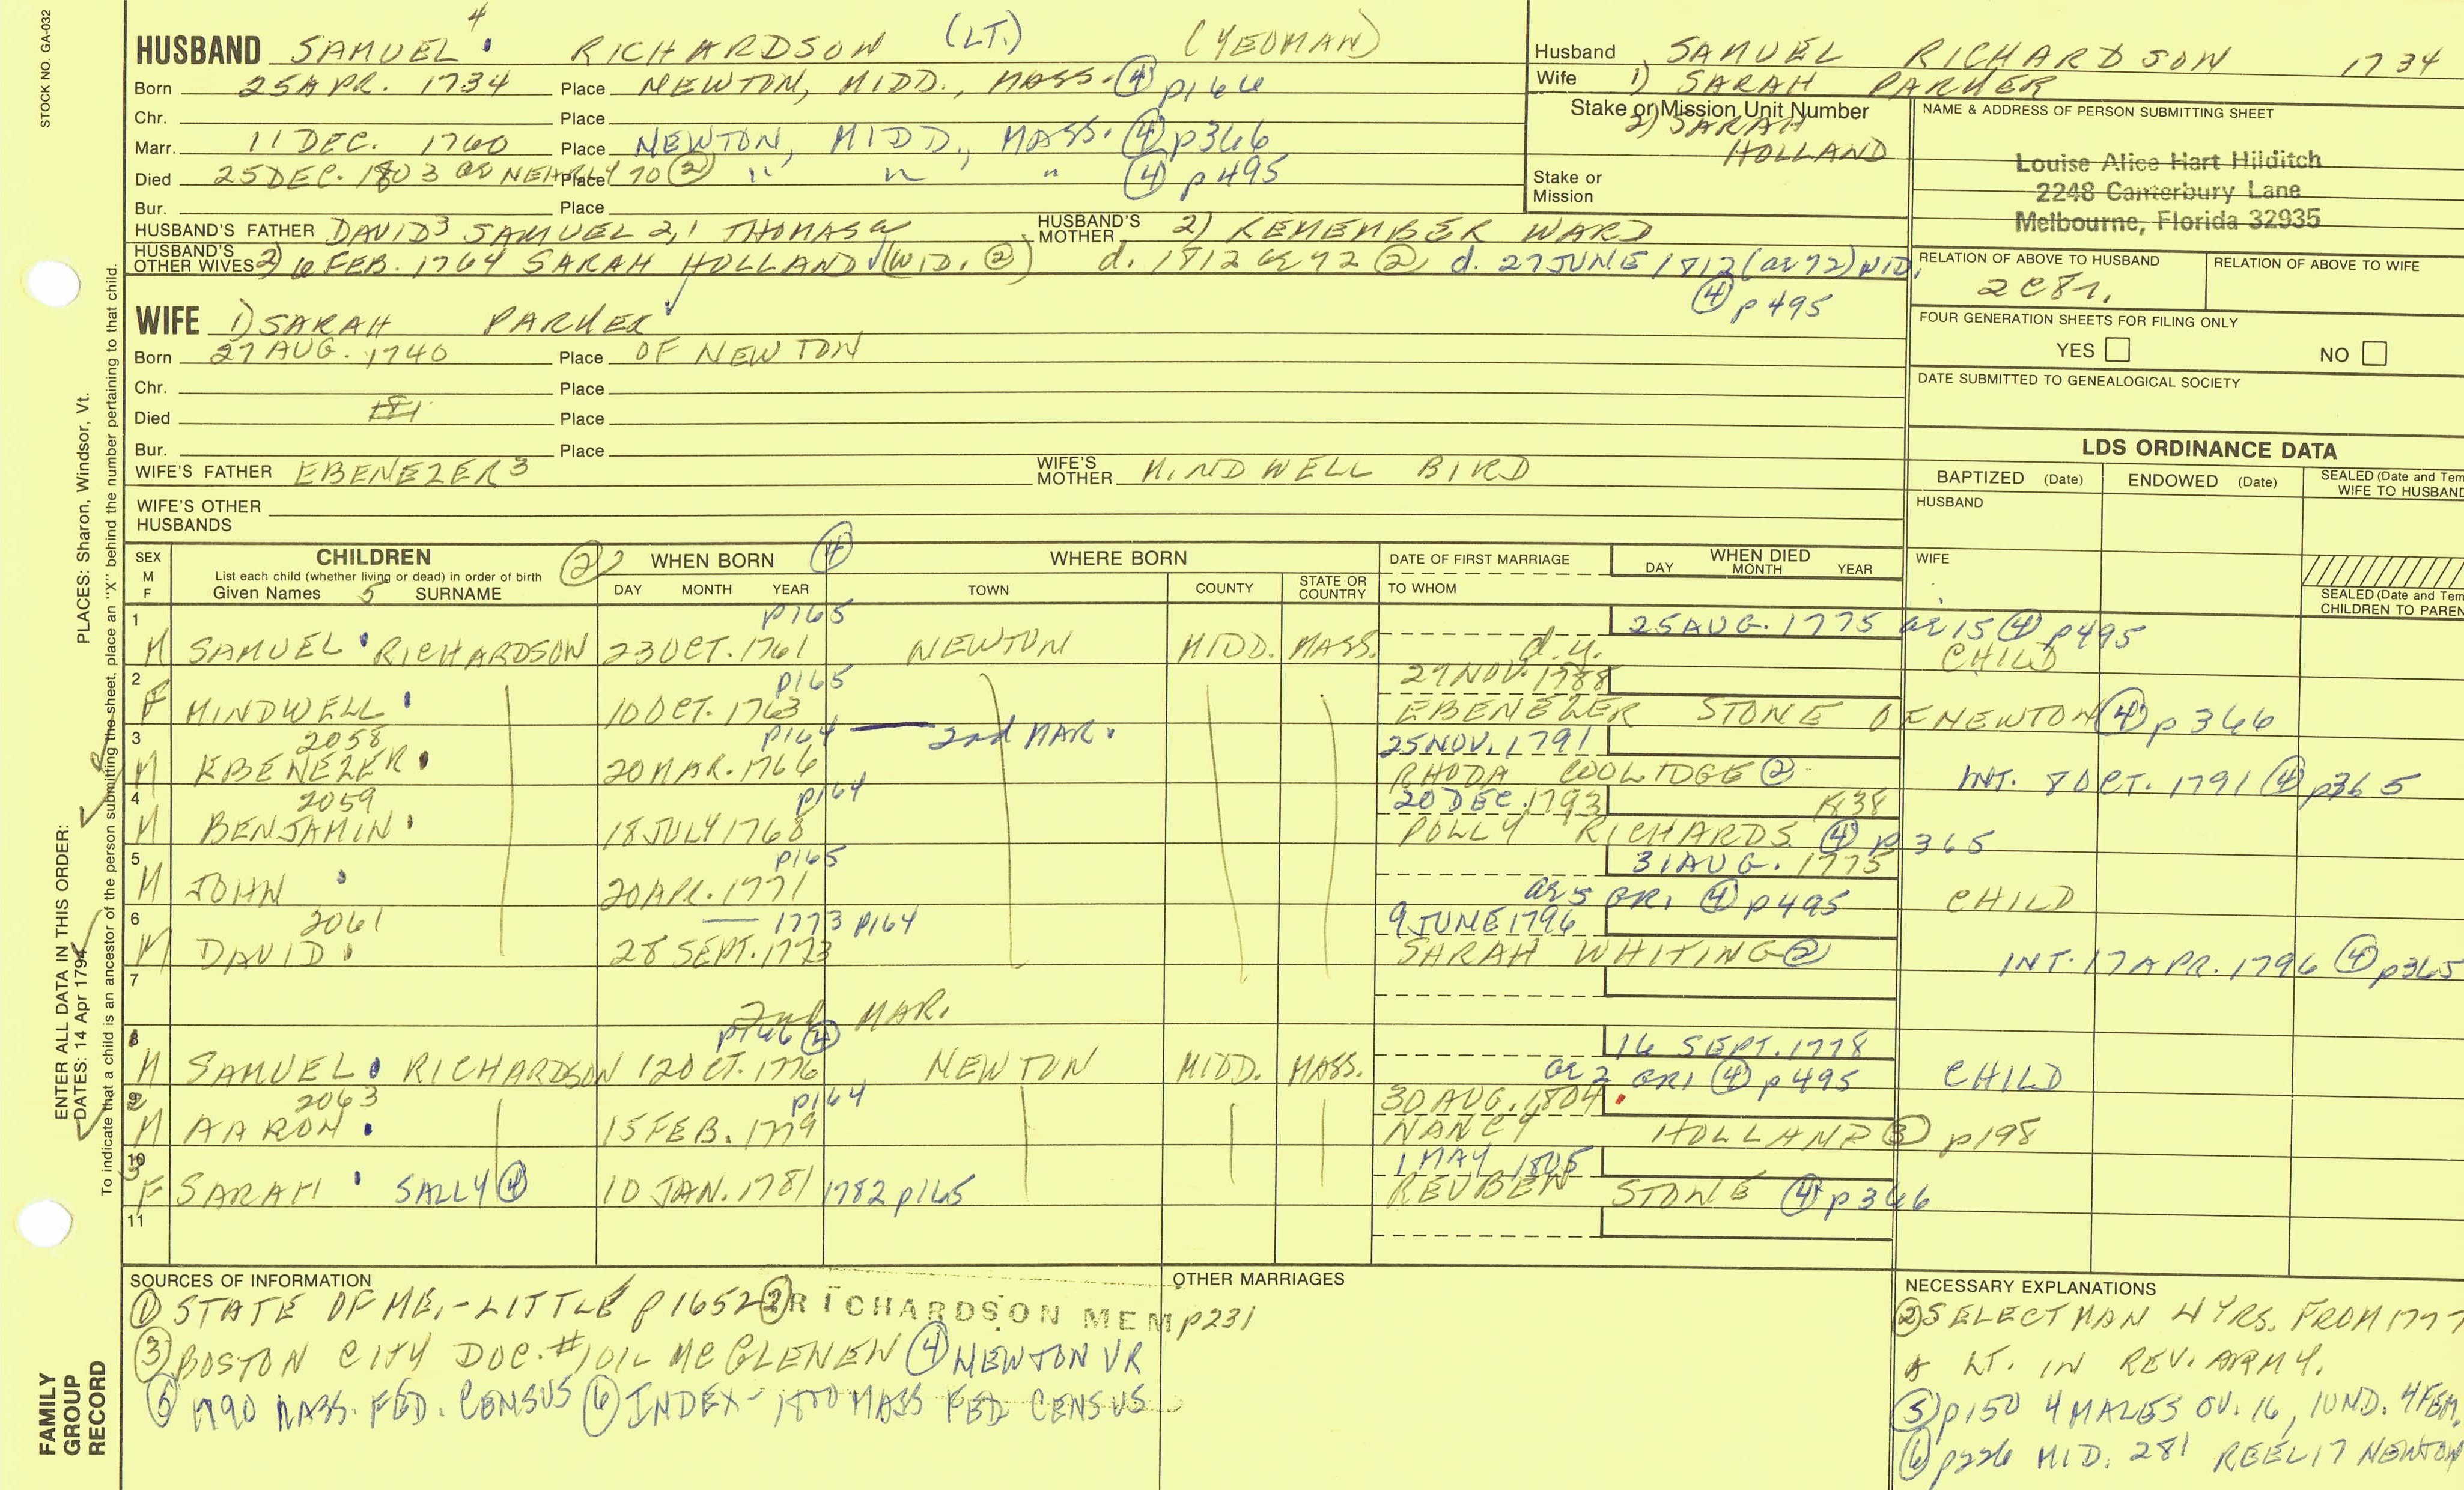 STOCK NO. GA-032
4
HUSBAND SAMUEL RICHARDSON (LT.) (YEOMAN)
Born 25 APR. 1734 Place NEWTON, MIDD., MASS. ④ p166
Chr. Place
Marr. 11 DEC. 1760 Place NEWTON, MIDD., MASS. ④ p366
Died 25 DEC. 1803 ae NEARLY 70 ② Place " " " ④ p495
Bur. Place
HUSBAND'S FATHER DAVID3 SAMUEL 2,1 THOMAS HUSBAND'S MOTHER 2) REMEMBER WARD
HUSBAND'S OTHER WIVES 2) 6 FEB. 1764 SARAH HOLLAND (WID. ②) d. 1812 ae 72 ② d. 27 JUNE 1812 (ae 72) WID.
④ p495
WIFE 1) SARAH PARKER
Born 27 AUG. 1740 Place OF NEWTON
Chr. Place
Died Place
Bur. Place
WIFE'S FATHER EBENEZER3 WIFE'S MOTHER MINDWELL BIRD
WIFE'S OTHER HUSBANDS
Husband SAMUEL RICHARDSON 1734
Wife 1) SARAH PARKER
Stake or Mission Unit Number
2) SARAH
HOLLAND
Stake or Mission
NAME & ADDRESS OF PERSON SUBMITTING SHEET
Louise Alice Hart Hilditch
2248 Canterbury Lane
Melbourne, Florida 32935
RELATION OF ABOVE TO HUSBAND RELATION OF ABOVE TO WIFE
2C8r.
FOUR GENERATION SHEETS FOR FILING ONLY
YES NO
DATE SUBMITTED TO GENEALOGICAL SOCIETY
LDS ORDINANCE DATA
BAPTIZED (Date) ENDOWED (Date) SEALED (Date and Tem
WIFE TO HUSBAND
HUSBAND
WIFE
SEALED (Date and Tem
CHILDREN TO PAREN
SEX M F CHILDREN ② WHEN BORN ④ WHERE BORN DATE OF FIRST MARRIAGE WHEN DIED
List each child (whether living or dead) in order of birth
Given Names 5 SURNAME DAY MONTH YEAR TOWN COUNTY STATE OR COUNTRY TO WHOM DAY MONTH YEAR
1 p165 25 AUG. 1775 ae 15 ④ p495
M SAMUEL RICHARDSON 23 OCT. 1761 NEWTON MIDD. MASS. d.y. CHILD
2 p165 27 NOV. 1788
F MINDWELL 10 OCT. 1763 EBENEZER STONE OF NEWTON ④ p366
3 2058 p164 — 2nd MAR. 25 NOV. 1791
M EBENEZER 20 MAR. 1766 RHODA COOLIDGE ② INT. 8 OCT. 1791 ④ p365
4 2059 p164 20 DEC. 1793 1838
M BENJAMIN 18 JULY 1768 POLLY RICHARDS ④ p365
5 p165 31 AUG. 1775
M JOHN 20 APR. 1771 ae 5 GR1 ④ p495 CHILD
6 2061 — 1773 p164 9 JUNE 1796
M DAVID 28 SEPT. 1773 SARAH WHITING ② INT. 17 APR. 1796 ④ p365
7
2nd MAR.
8 p166 ④ 16 SEPT. 1778
M SAMUEL RICHARDSON 12 OCT. 1776 NEWTON MIDD. MASS. ae 2 GR1 ④ p495 CHILD
9 2063 p164 30 AUG. 1804
M AARON 15 FEB. 1779 NANCY HOLLAND ③ p198
10 1 MAY 1805
F SARAH SALLY ④ 10 JAN. 1781 1782 p165 REUBEN STONE ④ p366
11
SOURCES OF INFORMATION
① STATE OF ME. - LITTLE p1652 ② RICHARDSON MEM p231
③ BOSTON CITY DOC. # 101 McGLENEN ④ NEWTON VR
⑤ 1790 MASS. FED. CENSUS ⑥ INDEX - 1800 MASS FED CENSUS
OTHER MARRIAGES
NECESSARY EXPLANATIONS
② SELECTMAN 4 YRS. FROM 1777
& LT. IN REV. ARMY.
⑤ p150 4 MALES OV. 16, 1 UND. 4 FEM.
⑥ p226 MID. 281 REEL 17 NEWTON
PLACES: Sharon, Windsor, Vt.
ENTER ALL DATA IN THIS ORDER:
DATES: 14 Apr 1794
To indicate that a child is an ancestor of the person submitting the sheet, place an "X" behind the number pertaining to that child.
FAMILY
GROUP
RECORD